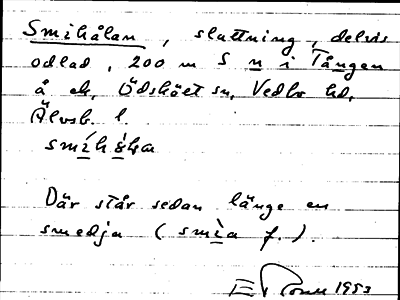 Smihålan, sluttning, delvis
odlad, 200 m S n i Tången
å ek, Ödskölt sn, Vedbo hd,
Älvsb. l.
Där står sedan länge en
smedja (smìa f.).
1953